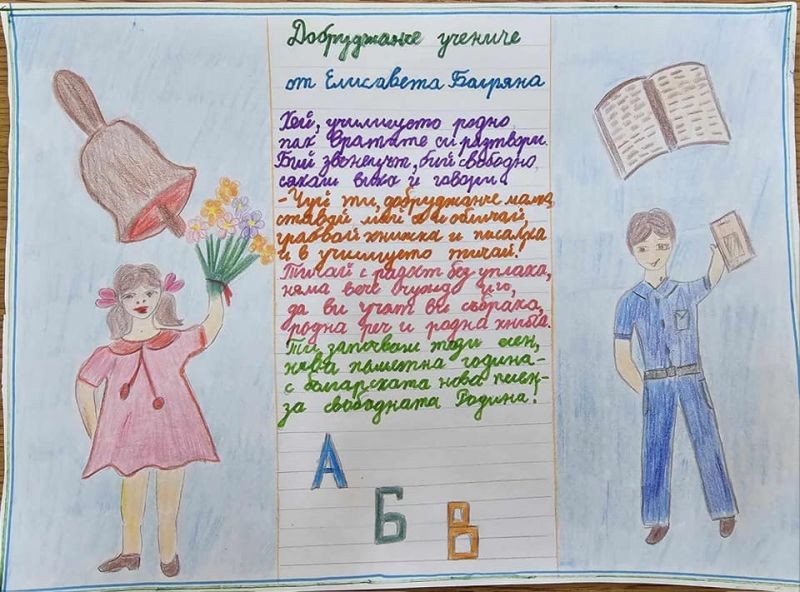 Добруджанче учениче
от Елисавета Багряна
Хей, училището родно,
пак вратите си разтвори.
Бий звънецът, бий свободно,
сякаш вика и говори:
- Чуй ти, добруджанче мало,
ставай мий се и обличай,
грабвай книжка и писалка
и в училището тичай!
Тичай с радост без уплаха,
няма вече чуждо иго,
да ви учат ви събраха,
родна реч и родна книга.
Ти започваш тази есен,
нова паметна година -
с българската нова песен -
за свободната Родина!
А
Б
В